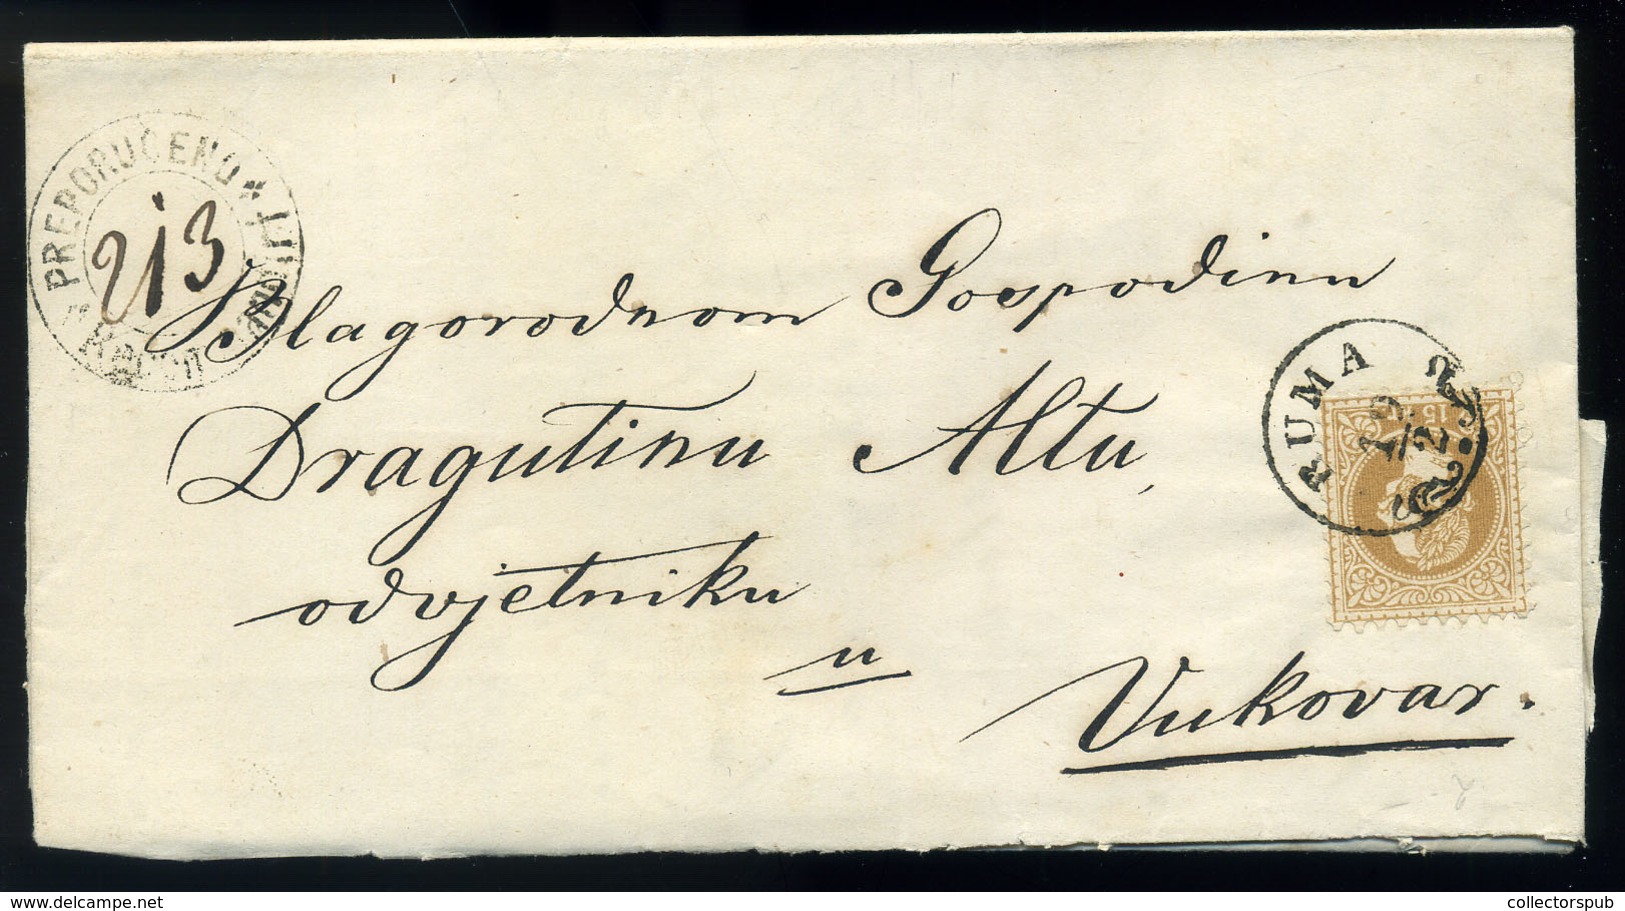 PREPORUČENO
213
Blagorodnom Gospodinu
Dragutinu Altu,
odvjetniku
u
Vukovar.
RUMA
19/2
15
collectorspub
collectorspub.com